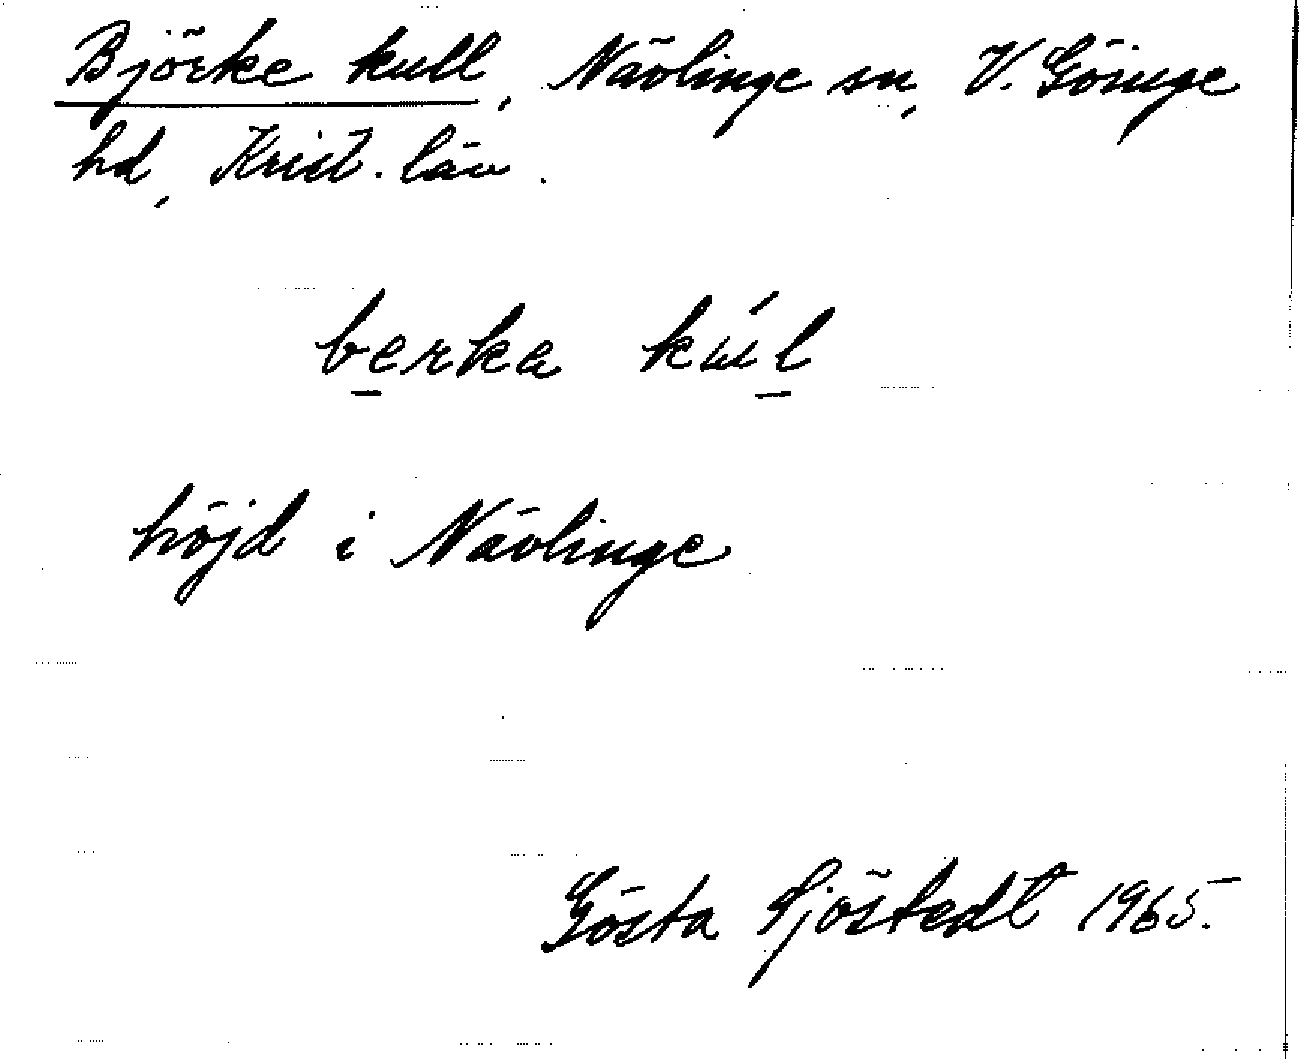 Björke kull, Nävlinge sn, V. Göinge
hd, Krist. län.
berka kúl
höjd i Nävlinge
Gösta Sjöstedt 1965.